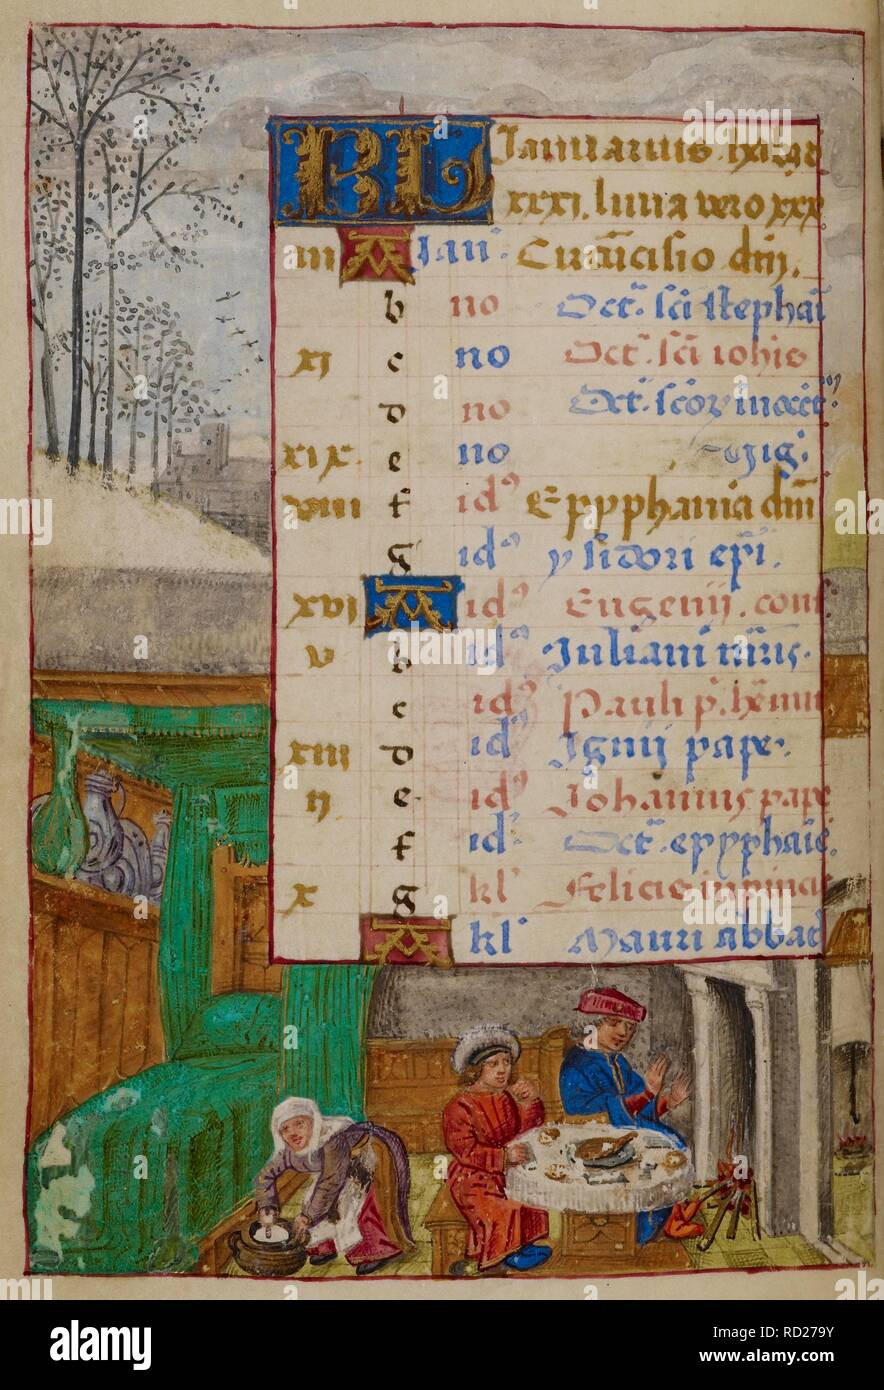 KL Januarius habet
xxxi. luna vero xxx
iii A Jan⁹ Circu̅cisio dn̅i.
b no Oct̅. sc̅i stephani
xi c no Oct̅. sc̅i iohis
d no Oct̅. sc̅oꝝ inocc̅t
xix e no vig̅.
viii f id⁹ Epyphania dn̅i
g id⁹ ysidori ep̅i.
xvi A id⁹ Eugenij. conf
v b id⁹ Juliani m̅ris.
c id⁹ Pauli p̅. hemit
xiii d id⁹ Ignij pape.
ii e id⁹ Johannis pape
f id⁹ Oct̅. epyphaie.
x g kl⁹ Felicis in pincis
A kl⁹ Mauri abbad
alamy
Image ID: RD279Y
www.alamy.com